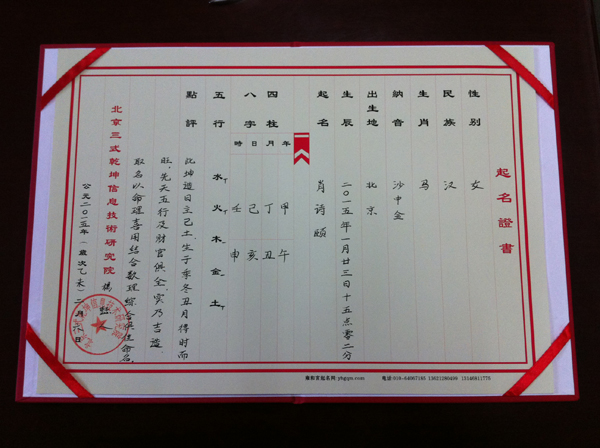 起名證書
性别 女
民族 汉
生肖 马
納音 沙中金
出生地 北京
生辰 二〇一五年一月廿三日十五点零二分
起名 肖诗颐
四柱
八字
年 甲午
月 丁丑
日 己亥
時 壬申
五行 水 火 木 金 土
點評 此坤造日主己土,生于季冬丑月得时而
旺,先天五行及财官俱全,实乃吉造
取名以命理喜用结合数理综合俱佳命名。
北京三式乾坤信息技術研究院
公元二〇一五年(歲次乙未)二月 日
雍和宫起名网:yhgqm.com 电话:010-64067185 13621280409 13146911775